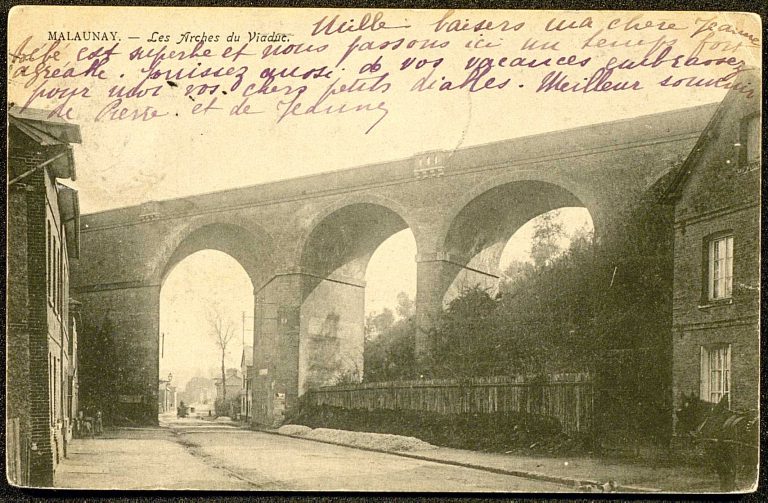 MALAUNAY. — Les Arches du Viaduc.
Mille baisers ma chere Jeanne
Bébé est superbe et nous passons ici un temps fort
agréable. Jouissez aussi de vos vacances embrassez
pour nous vos chers petits diables. Meilleur souvenir
de Pierre. et de Jeanny